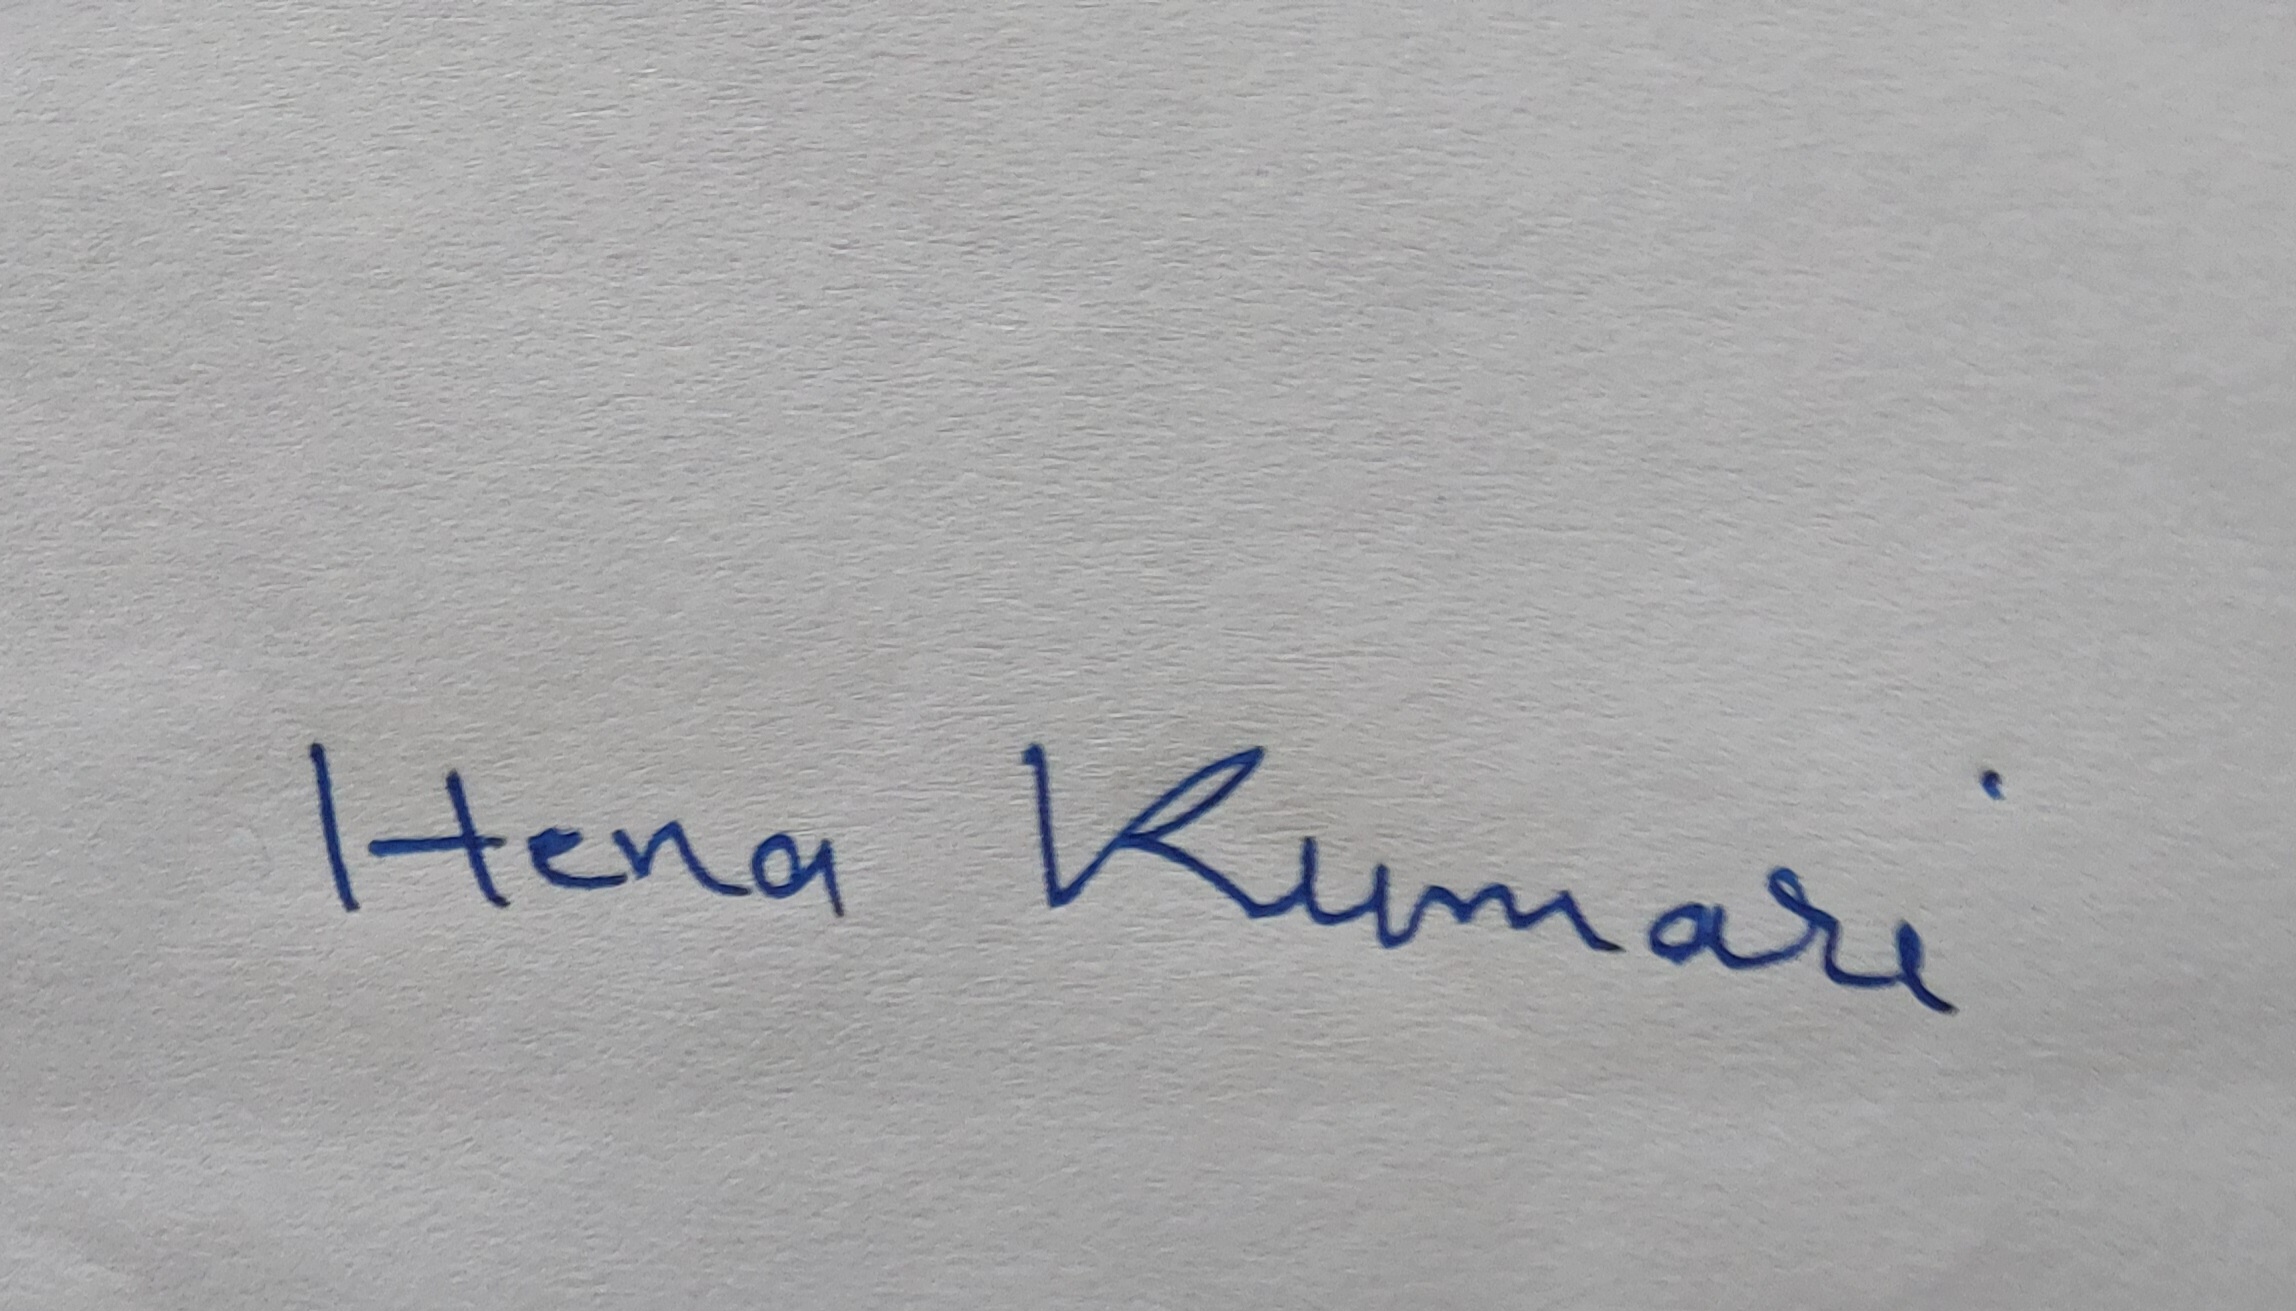 Hena Kumari